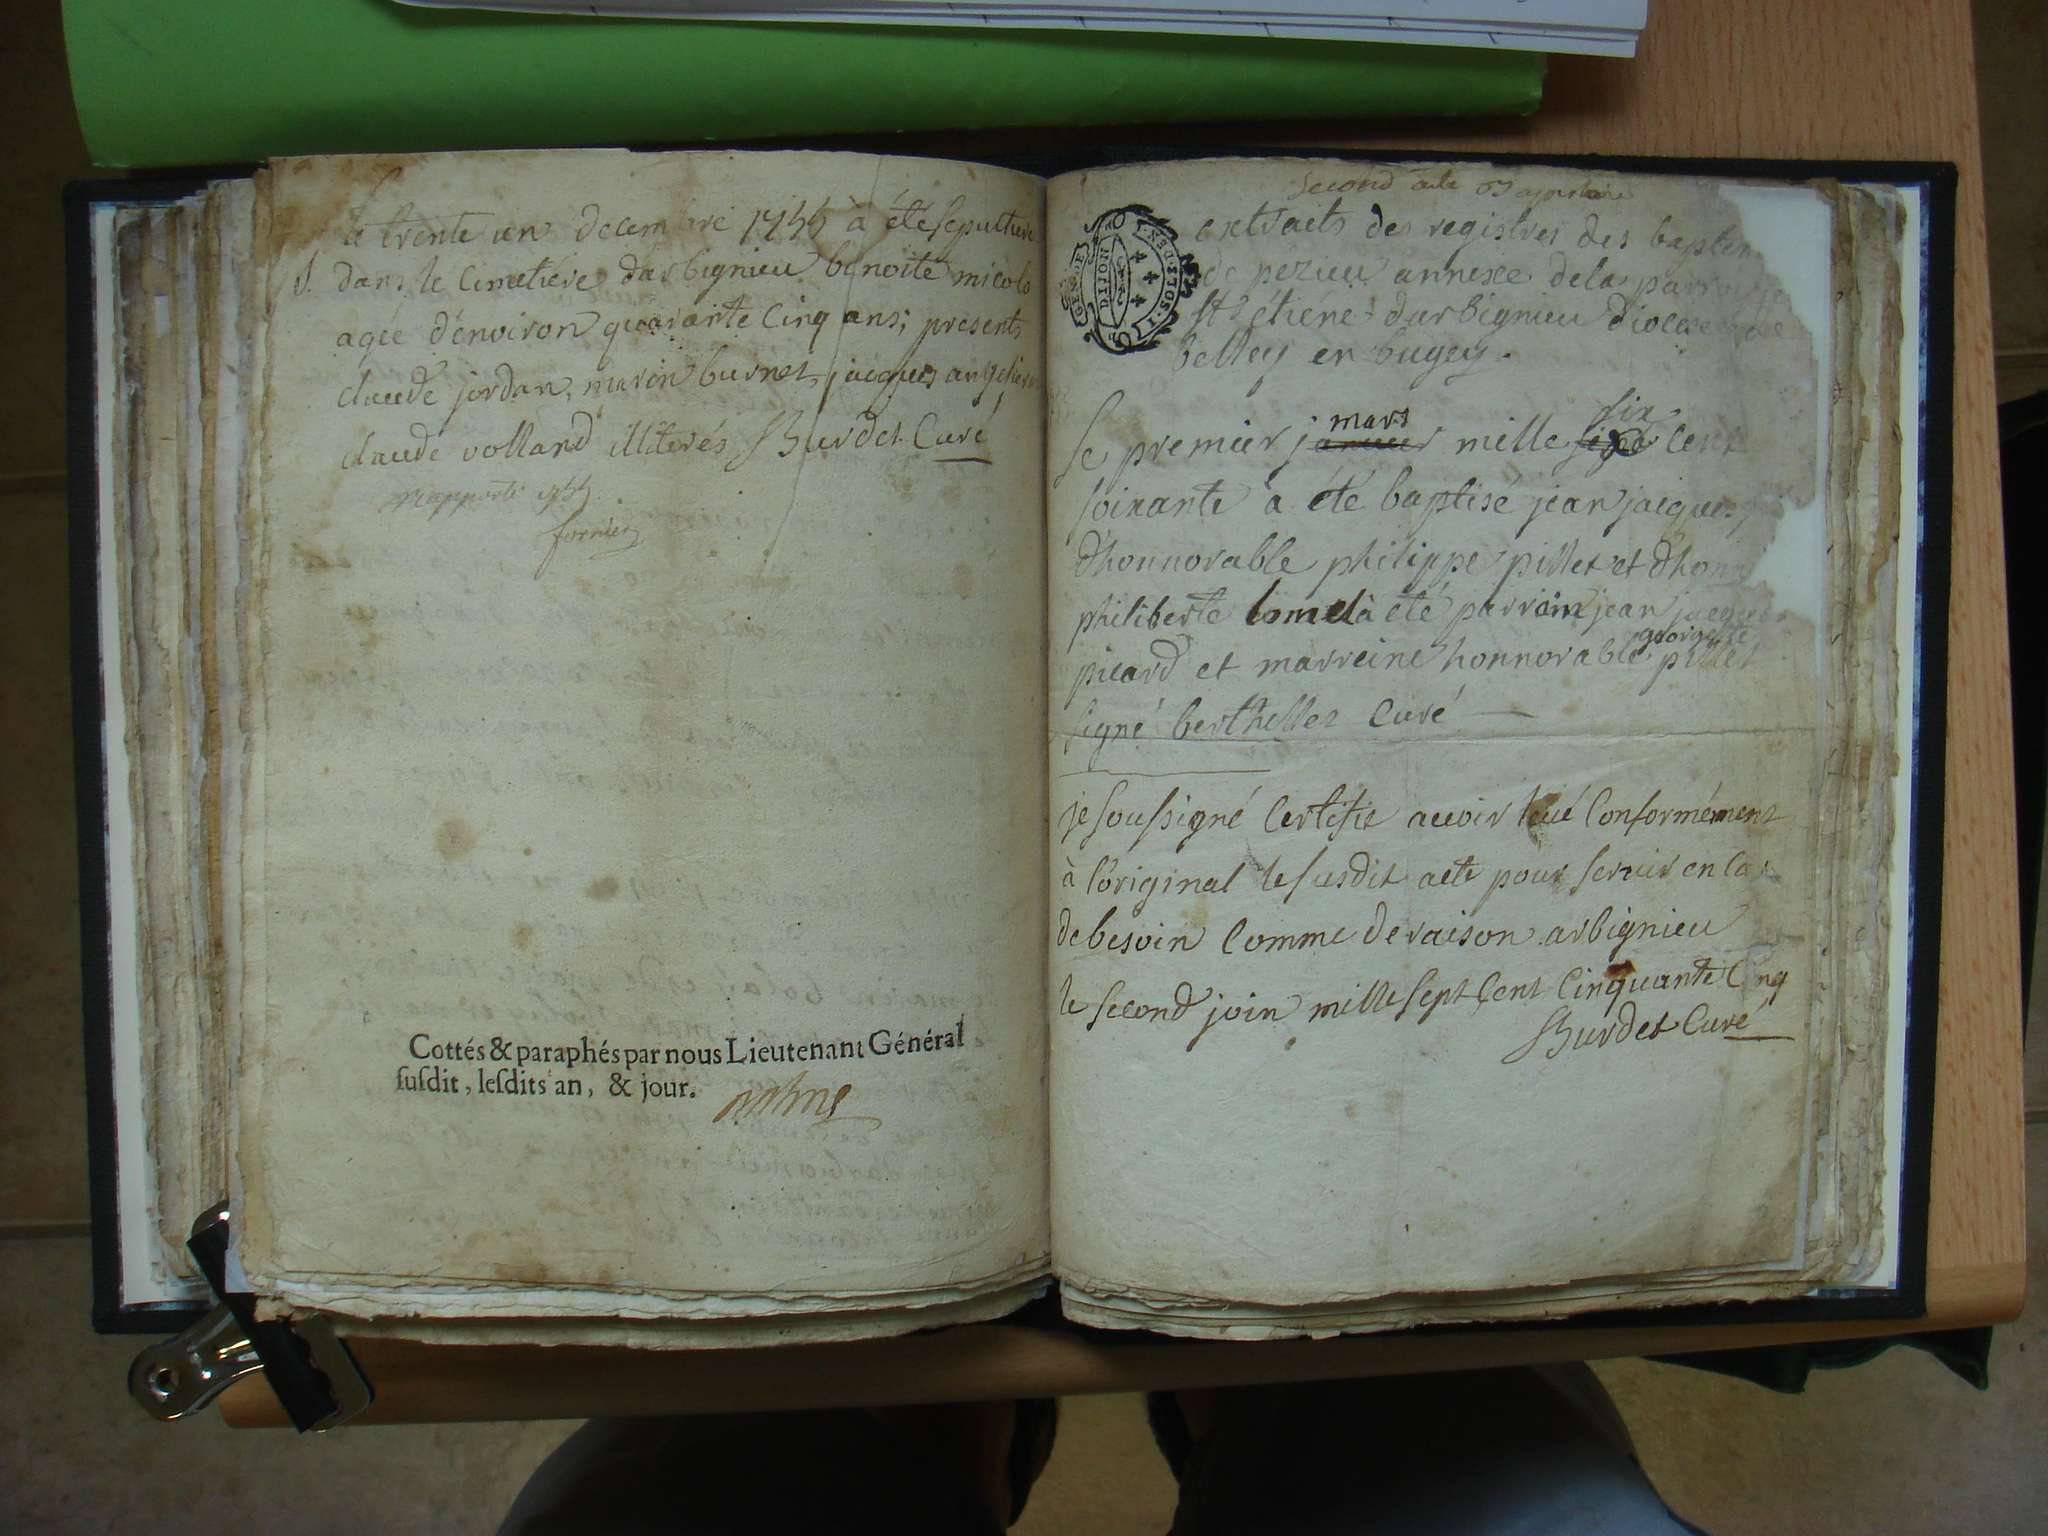 le trente un decembre 1755 à été sepulturé
S. dans le Cimetiere d'arbignieu benoite micol
agée d'environ quarante Cinq ans; présents
claude jordan, marin burnet, jacques
claude volland illiterés SBurdet Curé
rapporté 1755
fornier
Cottés & paraphés par nous Lieutenant Général
ſuſdit, leſdits an, & jour.
second acte
GEN. DE DIJON
I. SOL. 2. DEN.
extraits des registres des baptem
de pezieu annexe de la parroisse
st étiéne d'arbignieu diocese de
belley en bugey.
mars six
le premier janvier mille cent
soixante a été baptisé jean jacques
d'honnorable philippe pillet et d'honn
philiberte à été parrain jean jacques
georgette
picard et marreine honnorable pillet
signé berthellet Curé
je soussigné Certifie avoir levé Conformément
à l'original le susdit acte pour servir en Cas
de besoin Comme de raison arbignieu
le second join mille sept Cent Cinquante Cinq
SBurdet Curé